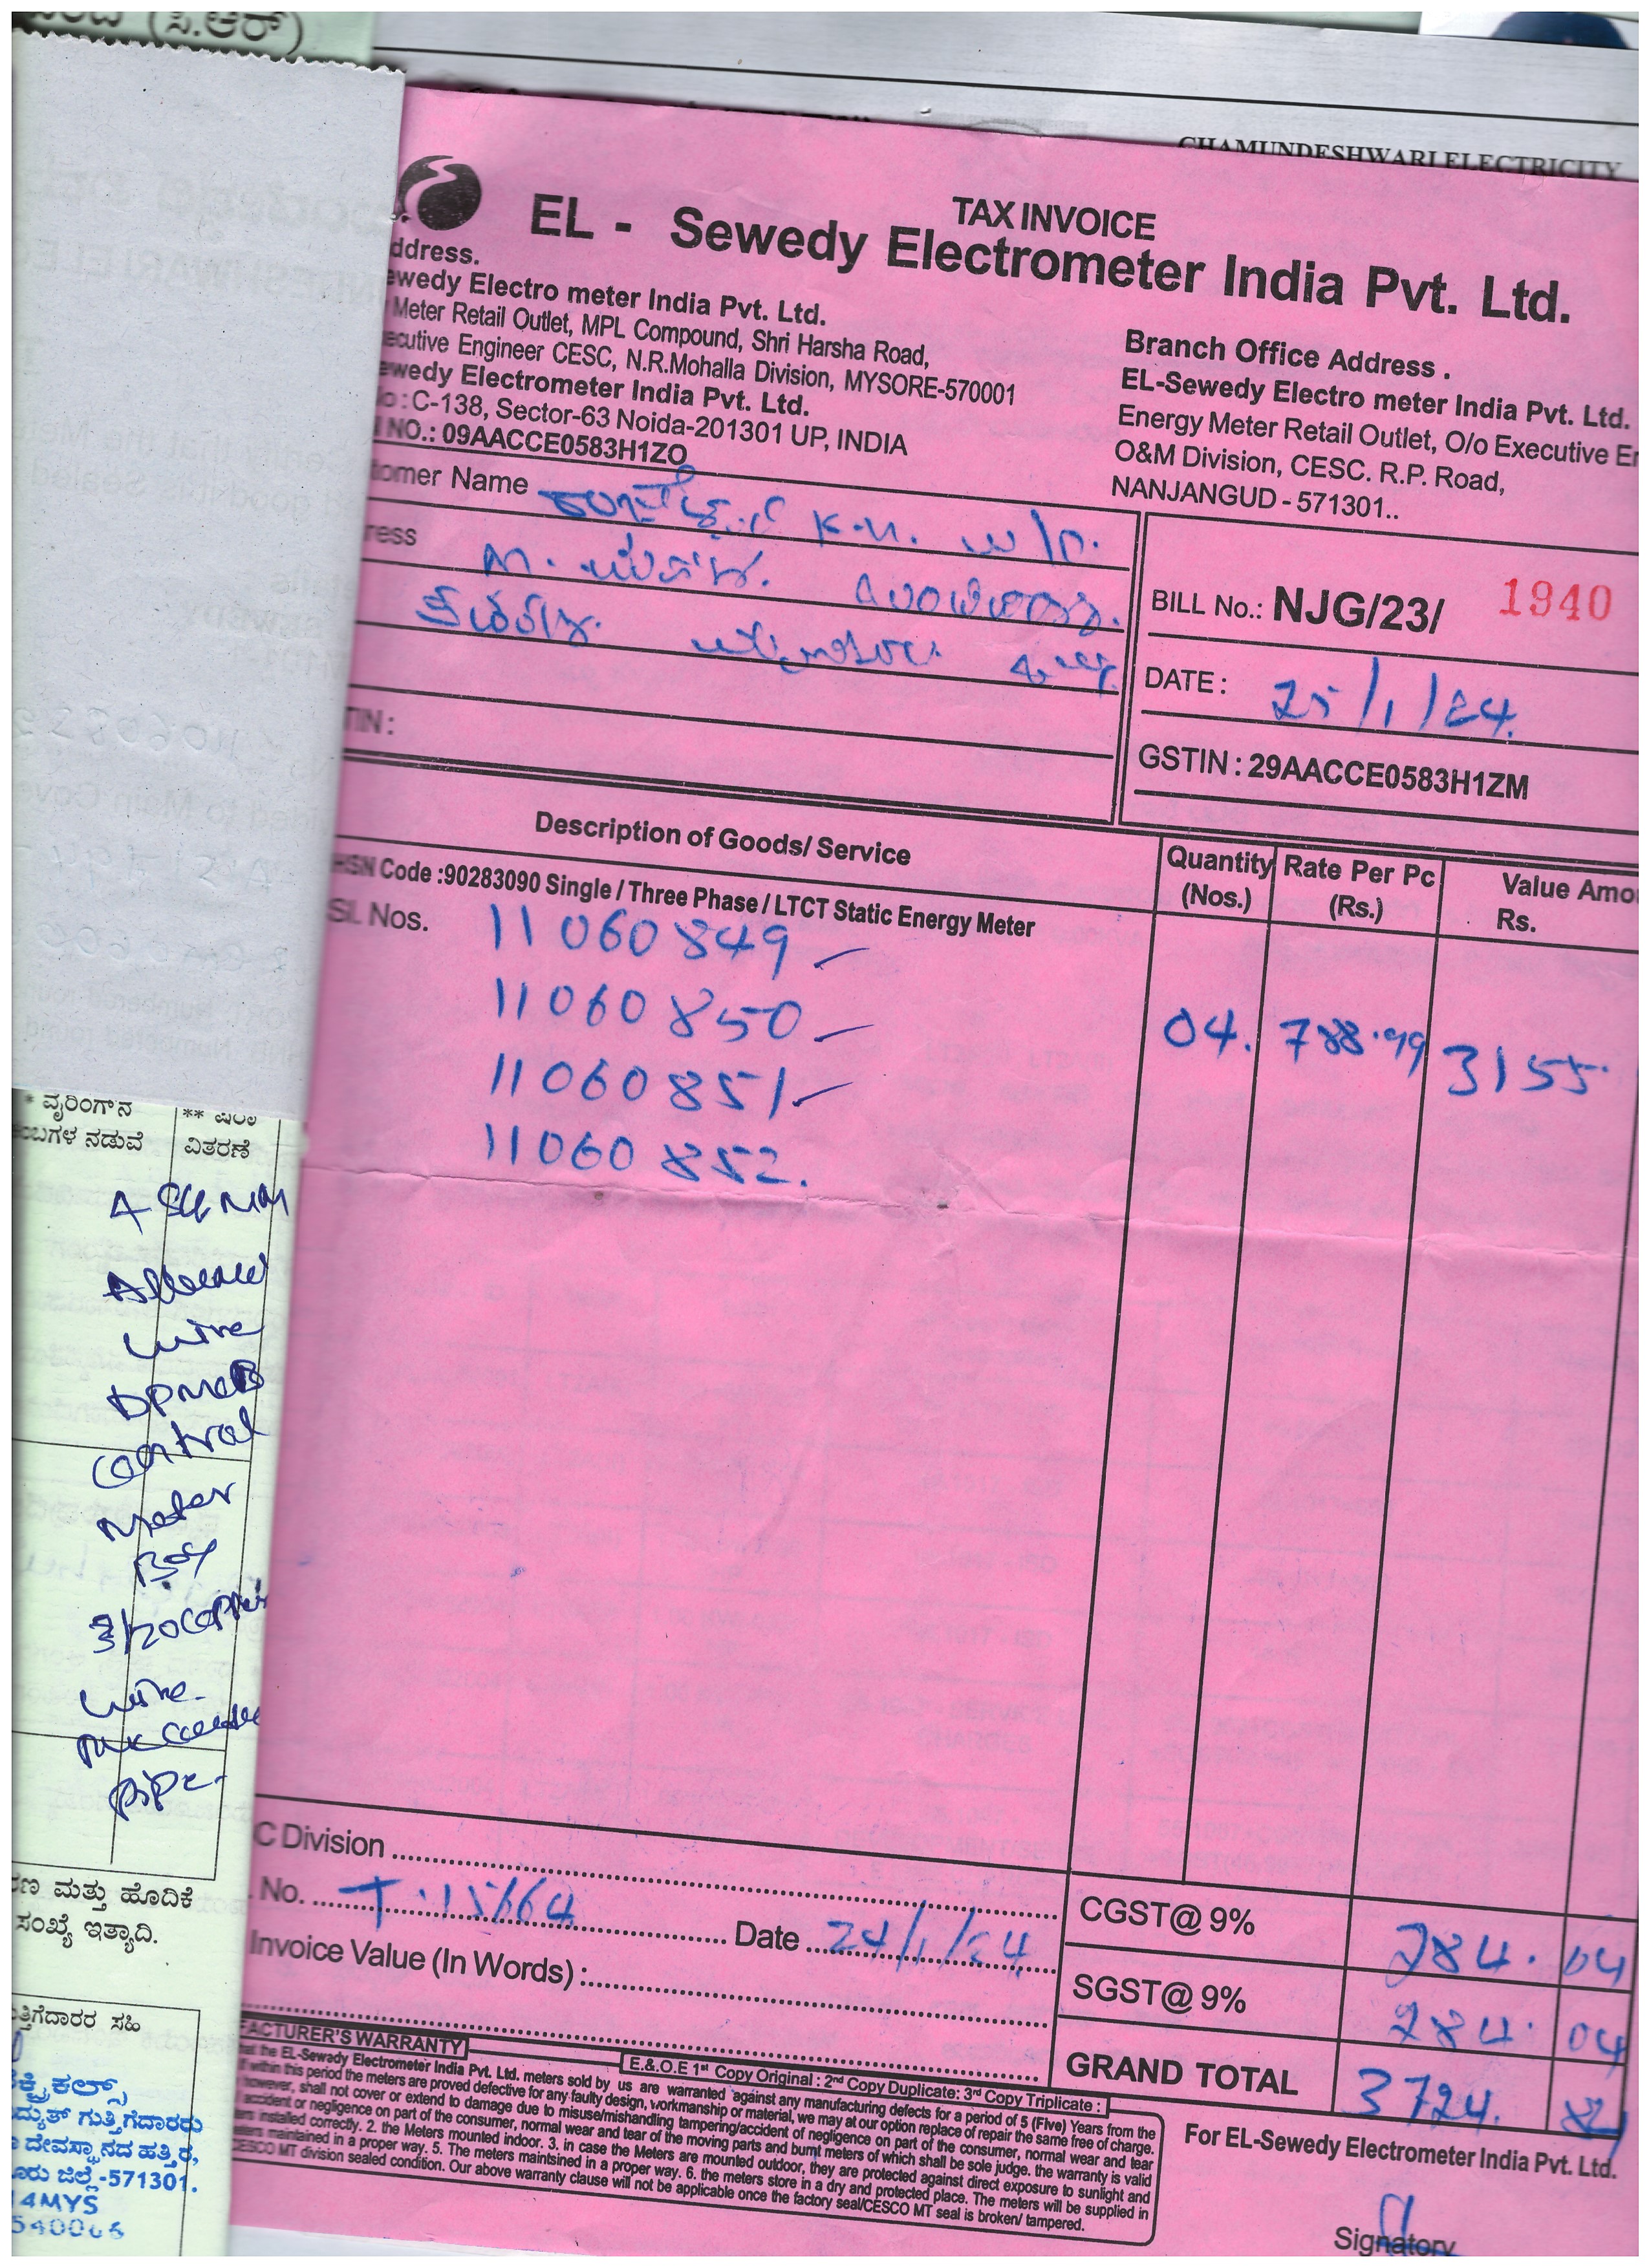 (ಸಿ.ಆರ್)
CHAMUNDESHWARI ELECTRICITY
TAX INVOICE
EL - Sewedy Electrometer India Pvt. Ltd.
ddress.
ewedy Electro meter India Pvt. Ltd.
Meter Retail Outlet, MPL Compound, Shri Harsha Road,
ecutive Engineer CESC, N.R.Mohalla Division, MYSORE-570001
ewedy Electrometer India Pvt. Ltd.
o : C-138, Sector-63 Noida-201301 UP, INDIA
NO.: 09AACCE0583H1ZO
Branch Office Address .
EL-Sewedy Electro meter India Pvt. Ltd.
Energy Meter Retail Outlet, O/o Executive E
O&M Division, CESC. R.P. Road,
NANJANGUD - 571301..
tomer Name K.N. w/o.
ress
TIN :
BILL No.: NJG/23/ 1940
DATE : 25/1/24.
GSTIN : 29AACCE0583H1ZM
Description of Goods/ Service
Quantity (Nos.)
Rate Per Pc (Rs.)
Value Amo
Rs.
HSN Code :90283090 Single / Three Phase / LTCT Static Energy Meter
Sl. Nos. 11060849
11060850
11060851
11060852.
04. 788.99 3155.
* ವೈರಿಂಗ್‌ನ
ಂಬಗಳ ನಡುವೆ
** ಷರಾ
ವಿತರಣೆ
wire
control
meter
Box
3/20 copper
wire
pipe-
ರಣ ಮತ್ತು ಹೊದಿಕೆ
ಸಂಖ್ಯೆ ಇತ್ಯಾದಿ.
ತ್ತಿಗೆದಾರರ ಸಹಿ
ಕ್ಟ್ರಿಕಲ್ಸ್
ದ್ಯುತ್ ಗುತ್ತಿಗೆದಾರರು
ದೇವಸ್ಥಾನದ ಹತ್ತಿರ,
ೂರು ಜಿಲ್ಲೆ-571301.
4MYS
C Division
No. T.15664 Date 24/1/24
Invoice Value (In Words) :
CGST@ 9% 284. 04
SGST@ 9% 284. 04
GRAND TOTAL 3724.
FACTURER'S WARRANTY
E.& O.E 1st Copy Original : 2nd Copy Duplicate: 3rd Copy Triplicate :
hat the EL-Sewady Electrometer India Pvt. Ltd. meters sold by us are warranted against any manufacturing defects for a period of 5 (Five) Years from the
If within this period the meters are proved defective for any faulty design, workmanship or material, we may at our option replace of repair the same free of charge.
however, shall not cover or extend to damage due to misuse/mishandling tampering/accident of negligence on part of the consumer, normal wear and tear
accident or negligence on part of the consumer, normal wear and tear of the moving parts and burnt meters of which shall be sole judge. the warranty is valid
ers installed correctly. 2. the Meters mounted indoor. 3. in case the Meters are mounted outdoor, they are protected against direct exposure to sunlight and
eters maintained in a proper way. 5. The meters maintsined in a proper way. 6. the meters store in a dry and protected place. The meters will be supplied in
CESCO MT division sealed condition. Our above warranty clause will not be applicable once the factory seal/CESCO MT seal is broken/ tampered.
For EL-Sewedy Electrometer India Pvt. Ltd.
Signatory